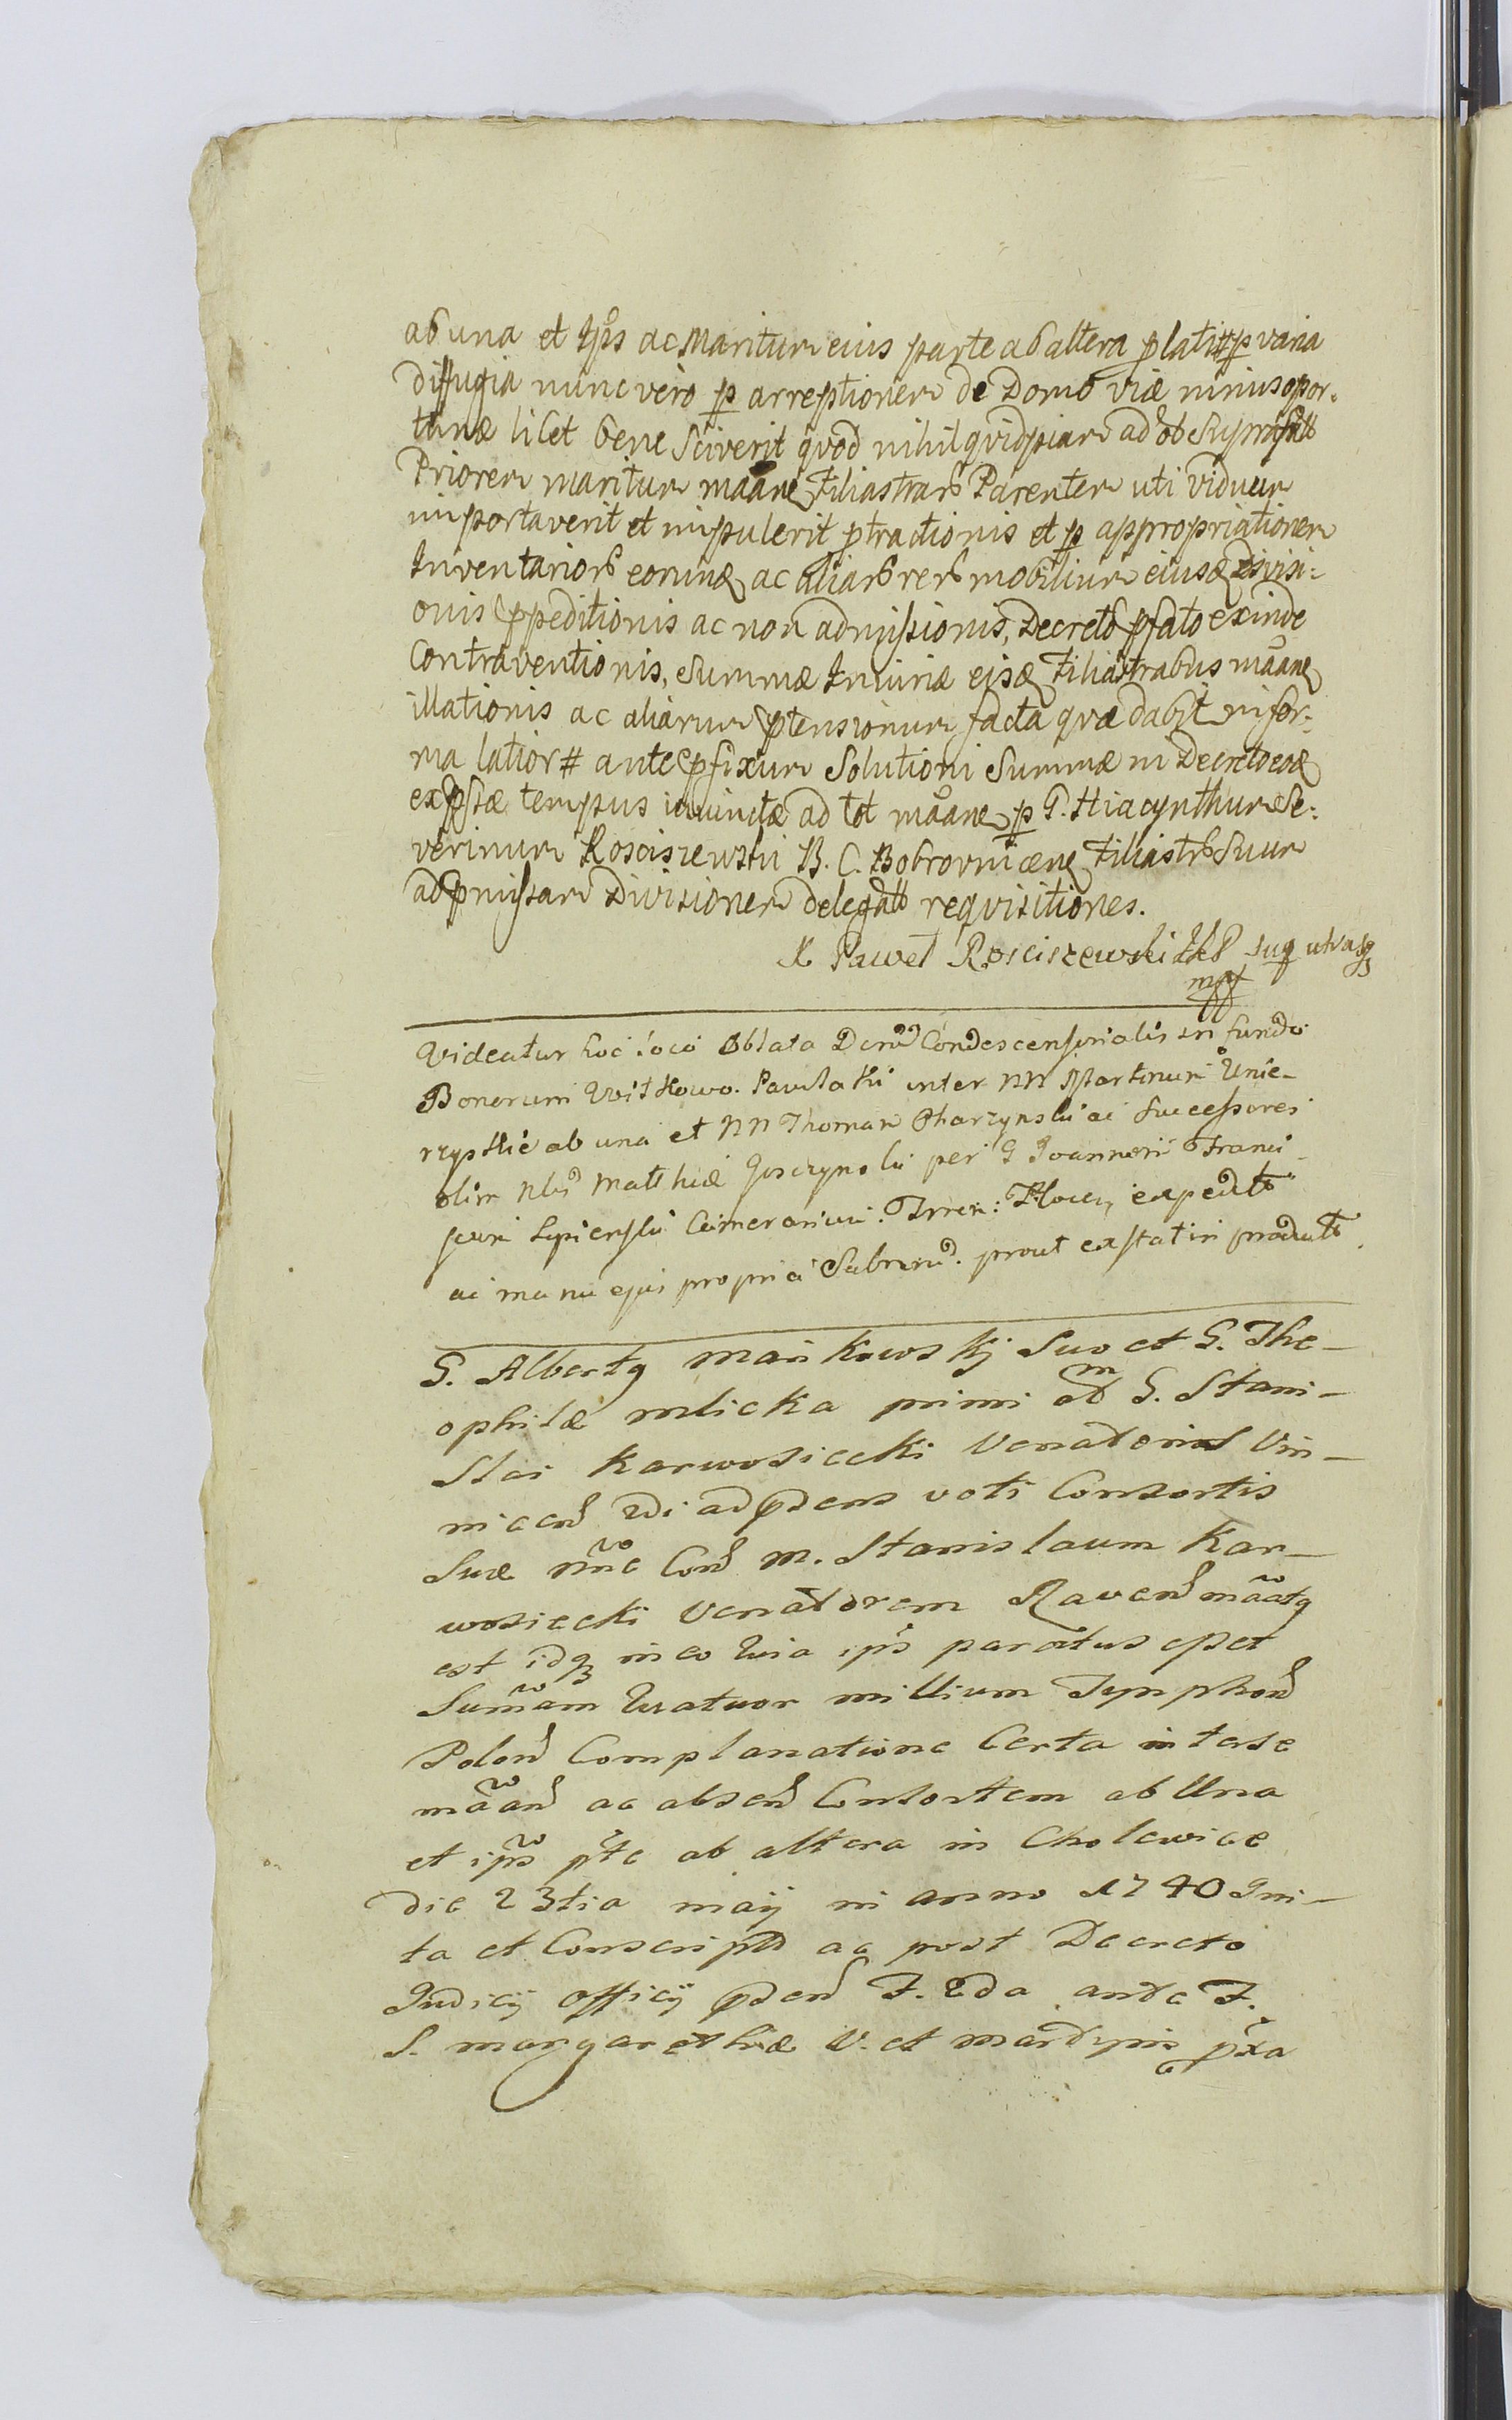 ab una et Ips ac Maritum eius parte ab altera platt# p varia
diffugia nunc vero p arreptionem de Domo viæ minus opor-
tunæ licet bene Sciverit qvod nihil qvidpiam ad ob
Priorem maritum maãne Filiastrarb Parentem uti viduam
importaverit et impulerit ptractionis et p appropriationem
Inventariorb eorumq ac aliarb rerb mobilium eiusq Divisi-
onis ppeditionis ac non admissionis, Decreto pfato exinde
Contraventionis, Summæ Iniuriæ eisq Filiastrabus maane
illationis ac aliarum ptensionum facta qvæ dabit in for-
ma latior# ante pfixum Solutioni Summæ in Decreto eoq
expssæ tempus iniunctæ ad tot maane p G. Hiacynthum Se-
verinum Kosciszewski B. C. Bobrovnicene Filiastrb Suum
ad pmissam Divisionem delegatt reqvisitiones.
X Paweł Rosciszewski suq
mpp
Videatur hoc loco Oblata Condescensorialis in fundo
Bonorum Witkowo Pawlaki inter NN Martinum Unie-
rzyskie ab una et NN Thomam Pharzynski ac Successores
olim Nbs Matthiæ Goszczynski per G Joannem Franci-
scum Lipienski Camerarium Terren: Plocen expedito
ac manu ejus propria Subscrip. prout extat in producto.
G. Albertq mankowskj Suo et G. The-
ophilæ mlicka primi 2dm G. Stani-
slai Karwosiecki Venatoris Vin-
nicens 2di ad psens voti Consortis
Suæ nnẽ Cons M. Stanislaum Kar-
wosiecki Venatorem Ravens mãatq
est idq in eo Quia ips paratus esset
Sumam Quatuor millium Tynphons
Polons Complanatione Certa inter se
mãans ac absens Consortem ab Una
et ips pte ab altera in Cholewice
die 23tia maij in anno 1740 Ini-
ta et Conscripta ac post Decreto
Iudicij officij psens F. 2da ante F.
S. margarethæ V. et martyris pxa